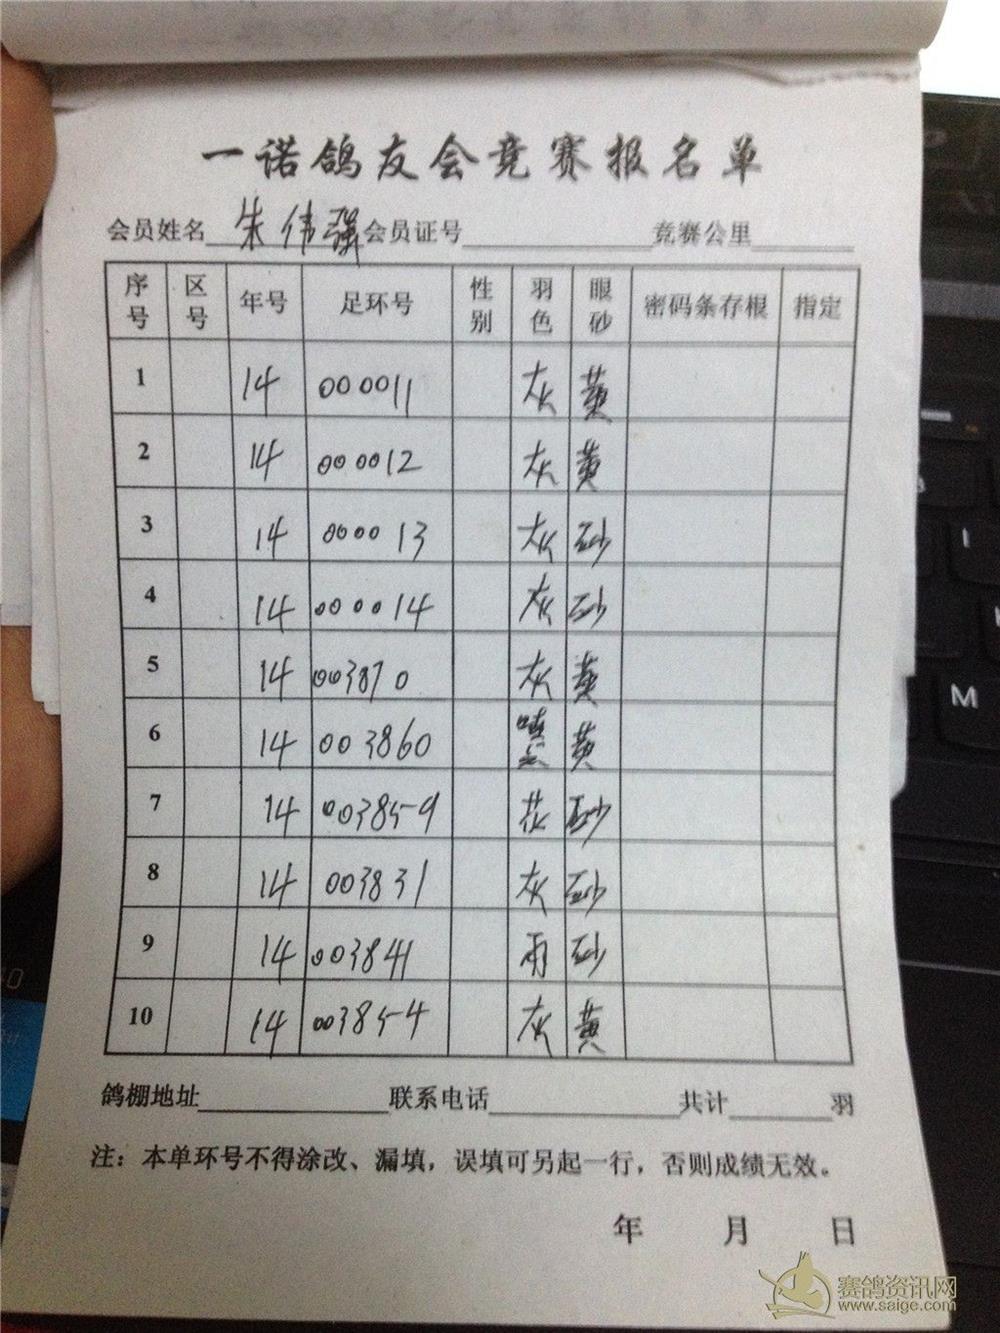 一诺鸽友会竞赛报名单
会员姓名 朱伟强 会员证号 竞赛公里
序号 区号 年号 足环号 性别 羽色 眼砂 密码条存根 指定
1 14 000011 灰 黄
2 14 000012 灰 黄
3 14 000013 灰 砂
4 14 000014 灰 砂
5 14 003870 灰 黄
6 14 003860 黄
7 14 003859 花 砂
8 14 003831 灰 砂
9 14 003841 雨 砂
10 14 003854 灰 黄
鸽棚地址 联系电话 共计 羽
注：本单环号不得涂改、漏填，误填可另起一行，否则成绩无效。
年 月 日
M
赛鸽资讯网
www.saige.com